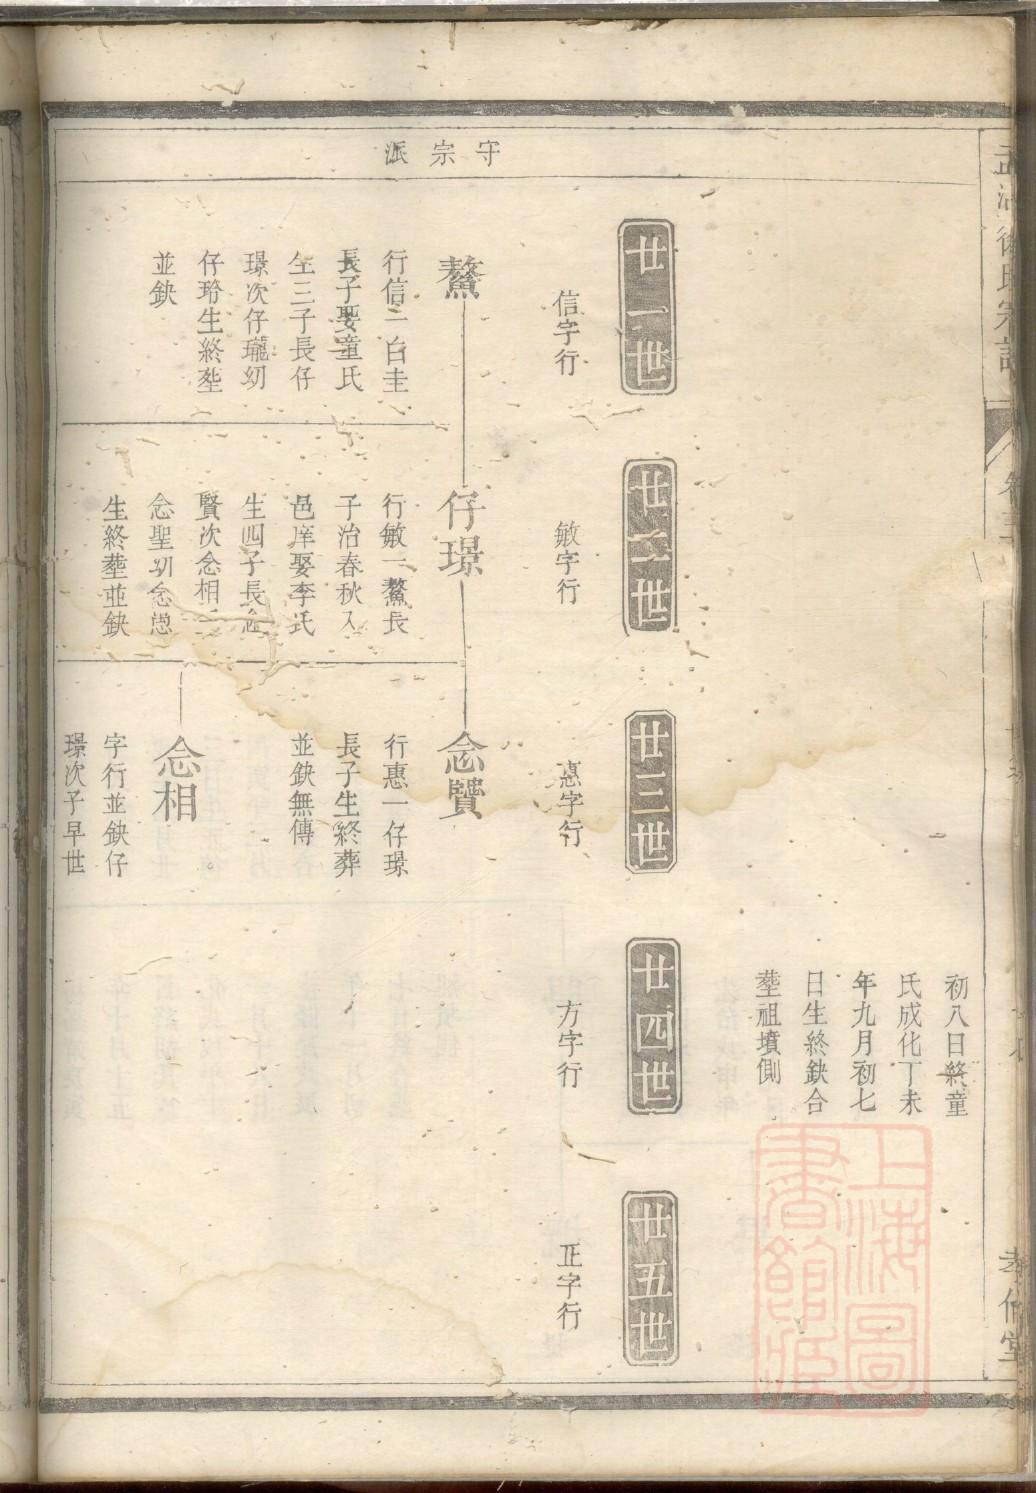 守宗派
初八日終童
氏成化丁未
年九月初七
日生終缺合
塟祖墳側
廿一世
信字行
廿二世
敏字行
廿三世
惠字行
廿四世
方字行
廿五世
正字行
鰲
行信二白圭
長子娶童氏
生三子長仔
璟次仔瓏㓜
仔玲生終塟
並缺
仔璟
行敏一鰲長
子治春秋入
邑庠娶李氏
生四子長念
賢次念相三
念聖㓜念
生終塟並缺
念賢
行惠一仔璟
長子生終葬
並缺無傳
念相
字行並缺仔
璟次子早世
孝
堂
上海圖
書館藏